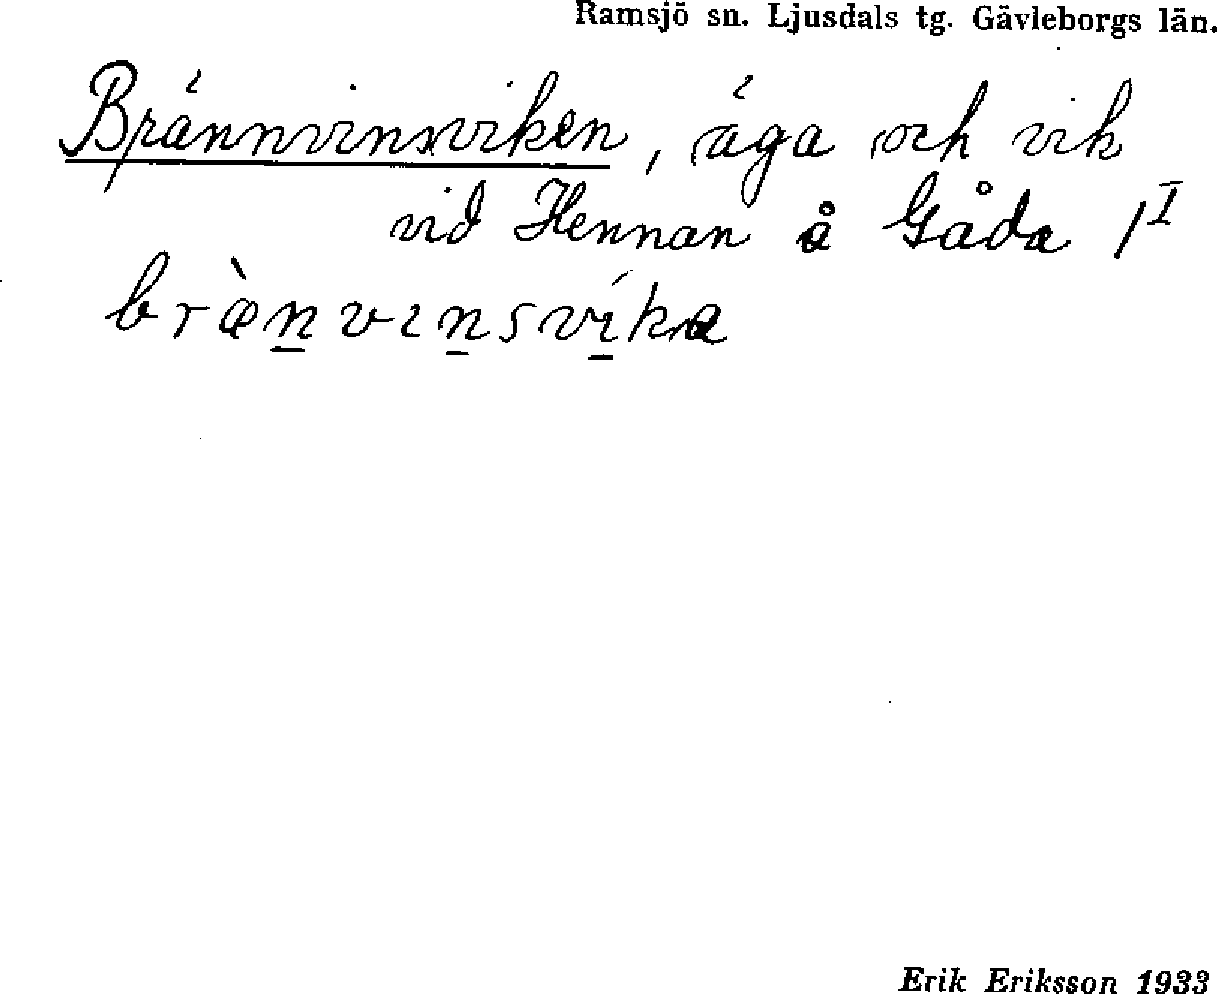 Ramsjö sn. Ljusdals tg. Gävleborgs län.
Brännvinsviken, äga och vik
vid Hennan å Gåda 1ᴵ
bræ̀n̲vɩn̲sví̲ka
Erik Eriksson 1933